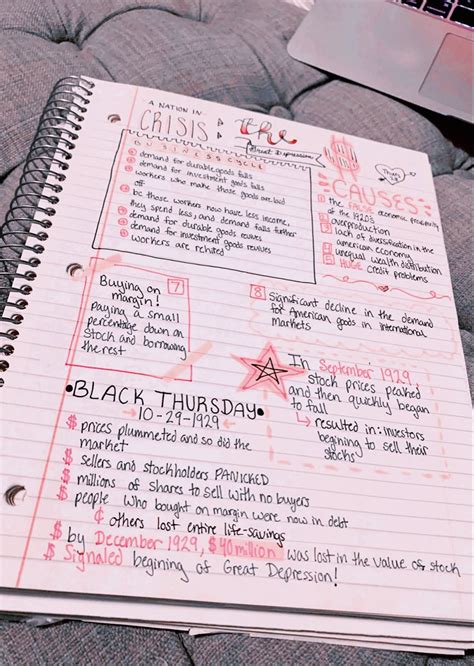 A NATION IN
CRISIS: the
Great Depression
BUSINESS CYCLE
① demand for durable goods falls
② demand for investment goods falls
③ workers who make those goods are laid
off
④ bc those workers now have less income,
they spend less, and demand falls further
⑤ demand for durable goods revives
⑥ demand for investment goods revives
⑦ workers are rehired
CAUSES
1 the FALSE economic prosperity
of the 1920's
2 overproduction
3 lack of diversification in the
american economy
4 unequal wealth distribution
5 HUGE credit problems
7
Buying on
margin!
paying a small
percentage down on
stock and borrowing
the rest
8 Significant decline in the demand
for American goods in international
markets
In September 1929,
stock prices peaked
and then quickly began
to fall
↳ resulted in: investors
begining to sell their
stocks
•BLACK THURSDAY•
→10-29-1929←
$ prices plummeted and so did the
market
$ sellers and stockholders PANICKED
$ millions of shares to sell with no buyers
$ people who bought on margin were now in debt
¢ others lost entire life-savings
$ by December 1929, $40 million was lost in the value of stock
$ Signaled begining of Great Depression!